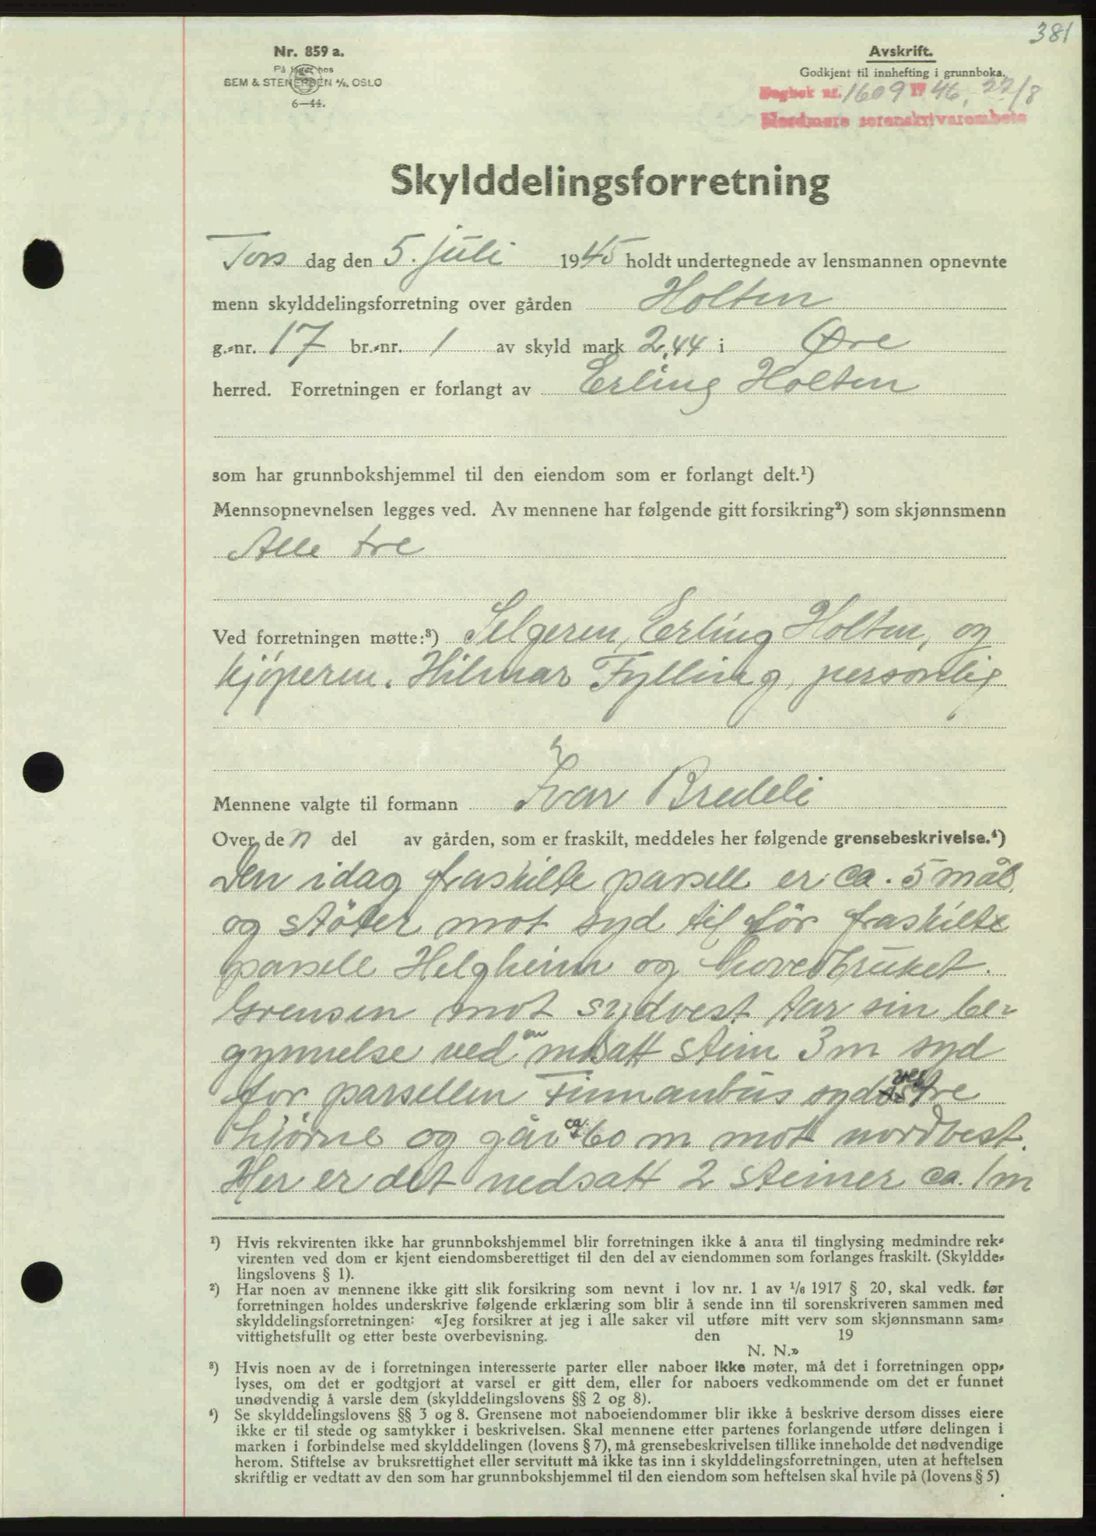 381
Nr. 859 a.
På lager hos
SEM & STENERSEN A/S, OSLO
6—44.
Avskrift.
Godkjent til innhefting i grunnboka.
Dagbok nr. 1609 1946, 22/8
Nordmøre sorenskrivarembete
Skylddelingsforretning
Tors dag den 5. juli 1945 holdt undertegnede av lensmannen opnevnte
menn skylddelingsforretning over gården Holten
g.-nr. 17 br.-nr. 1 av skyld mark 2,44 i Øre
herred. Forretningen er forlangt av Erling Holten
som har grunnbokshjemmel til den eiendom som er forlangt delt.¹)
Mennsopnevnelsen legges ved. Av mennene har følgende gitt forsikring²) som skjønnsmenn
Alle tre
Ved forretningen møtte:³) Selgeren, Erling Holten, og
kjöperen. Hilmar Fylling, personlig
Mennene valgte til formann Ivar Bredeli
Over den del av gården, som er fraskilt, meddeles her følgende grensebeskrivelse.⁴)
Den idag fraskilte parsell er ca. 5 mål.
og stöter mot syd til för fraskilte
parsell Helgheim og hovedbruket.
Grensen mot sydvest tar sin be-
gynnelse ved en nedsatt stein 3 m syd
for parsellen Finnanbus sydvestre
hjörne og går ca. 60 m mot nordvest.
Her er det nedsatt 2 steiner ca. 1 m
¹) Hvis rekvirenten ikke har grunnbokshjemmel blir forretningen ikke å anta til tinglysing medmindre rek-
virenten ved dom er kjent eiendomsberettiget til den del av eiendommen som forlanges fraskilt. (Skyldde-
lingslovens § 1).
²) Har noen av mennene ikke gitt slik forsikring som nevnt i lov nr. 1 av 1/6 1917 § 20, skal vedk. før
forretningen holdes underskrive følgende erklæring som blir å sende inn til sorenskriveren sammen med
skylddelingsforretningen: «Jeg forsikrer at jeg i alle saker vil utføre mitt verv som skjønnsmann sam-
vittighetsfullt og etter beste overbevisning. den 19
N. N.»
³) Hvis noen av de i forretningen interesserte parter eller naboer ikke møter, må det i forretningen opp-
lyses, om det er godtgjort at varsel er gitt dem, eller for naboers vedkommende om det er funnet
unødvendig å varsle dem (skylddelingslovens §§ 2 og 8).
⁴) Se skylddelingslovens §§ 3 og 8. Grensene mot naboeiendommer blir ikke å beskrive dersom disses eiere
ikke er til stede og samtykker i beskrivelsen. Skal mennene etter partenes forlangende utføre delingen i
marken i forbindelse med skylddelingen (lovens § 7), må grensebeskrivelsen tillike inneholde det nødvendige
herom. Stiftelse av bruksrettighet eller servitutt må ikke tas inn i skylddelingsforretningen, uten at heftelsen
skriftlig er vedtatt av den som har grunnbokshjemmel til den eiendom som heftelsen skal hvile på (lovens § 5)